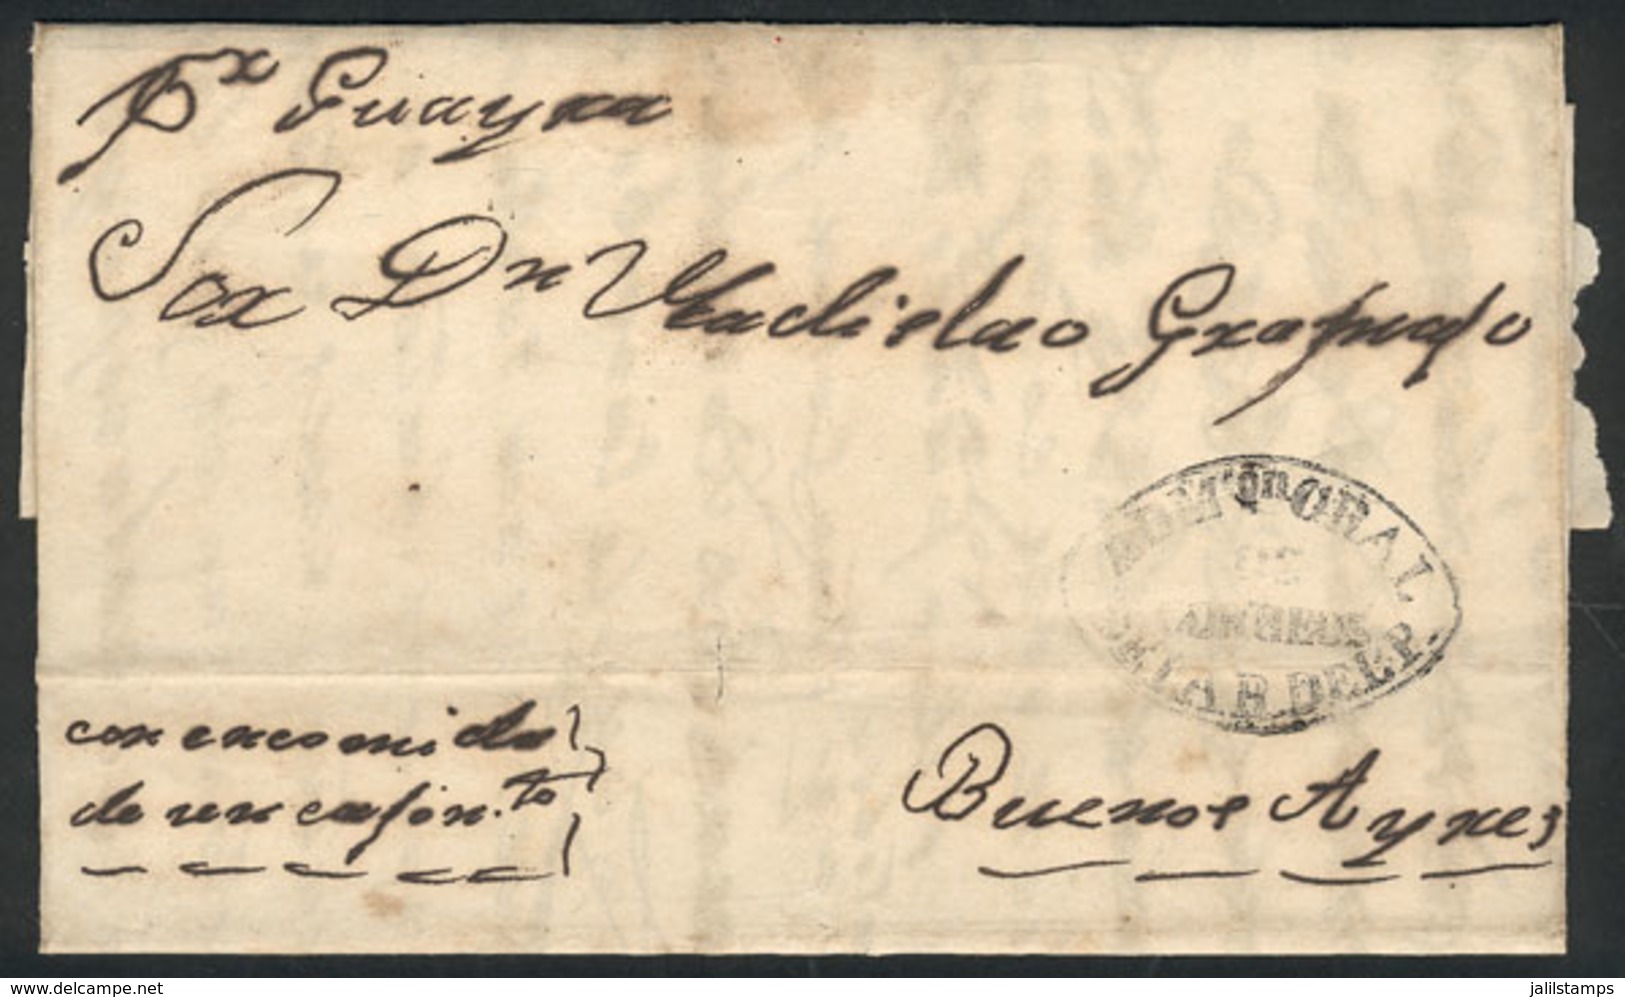 Pr Guayra
Sor Dn Uladislao Grafuafo
ADM'on GRAL
DE
CORREOS
DE MAR DEL P.
con encomida
de un cafon.to
Buenos Ayres
www.delcampe.net
jalilstamps